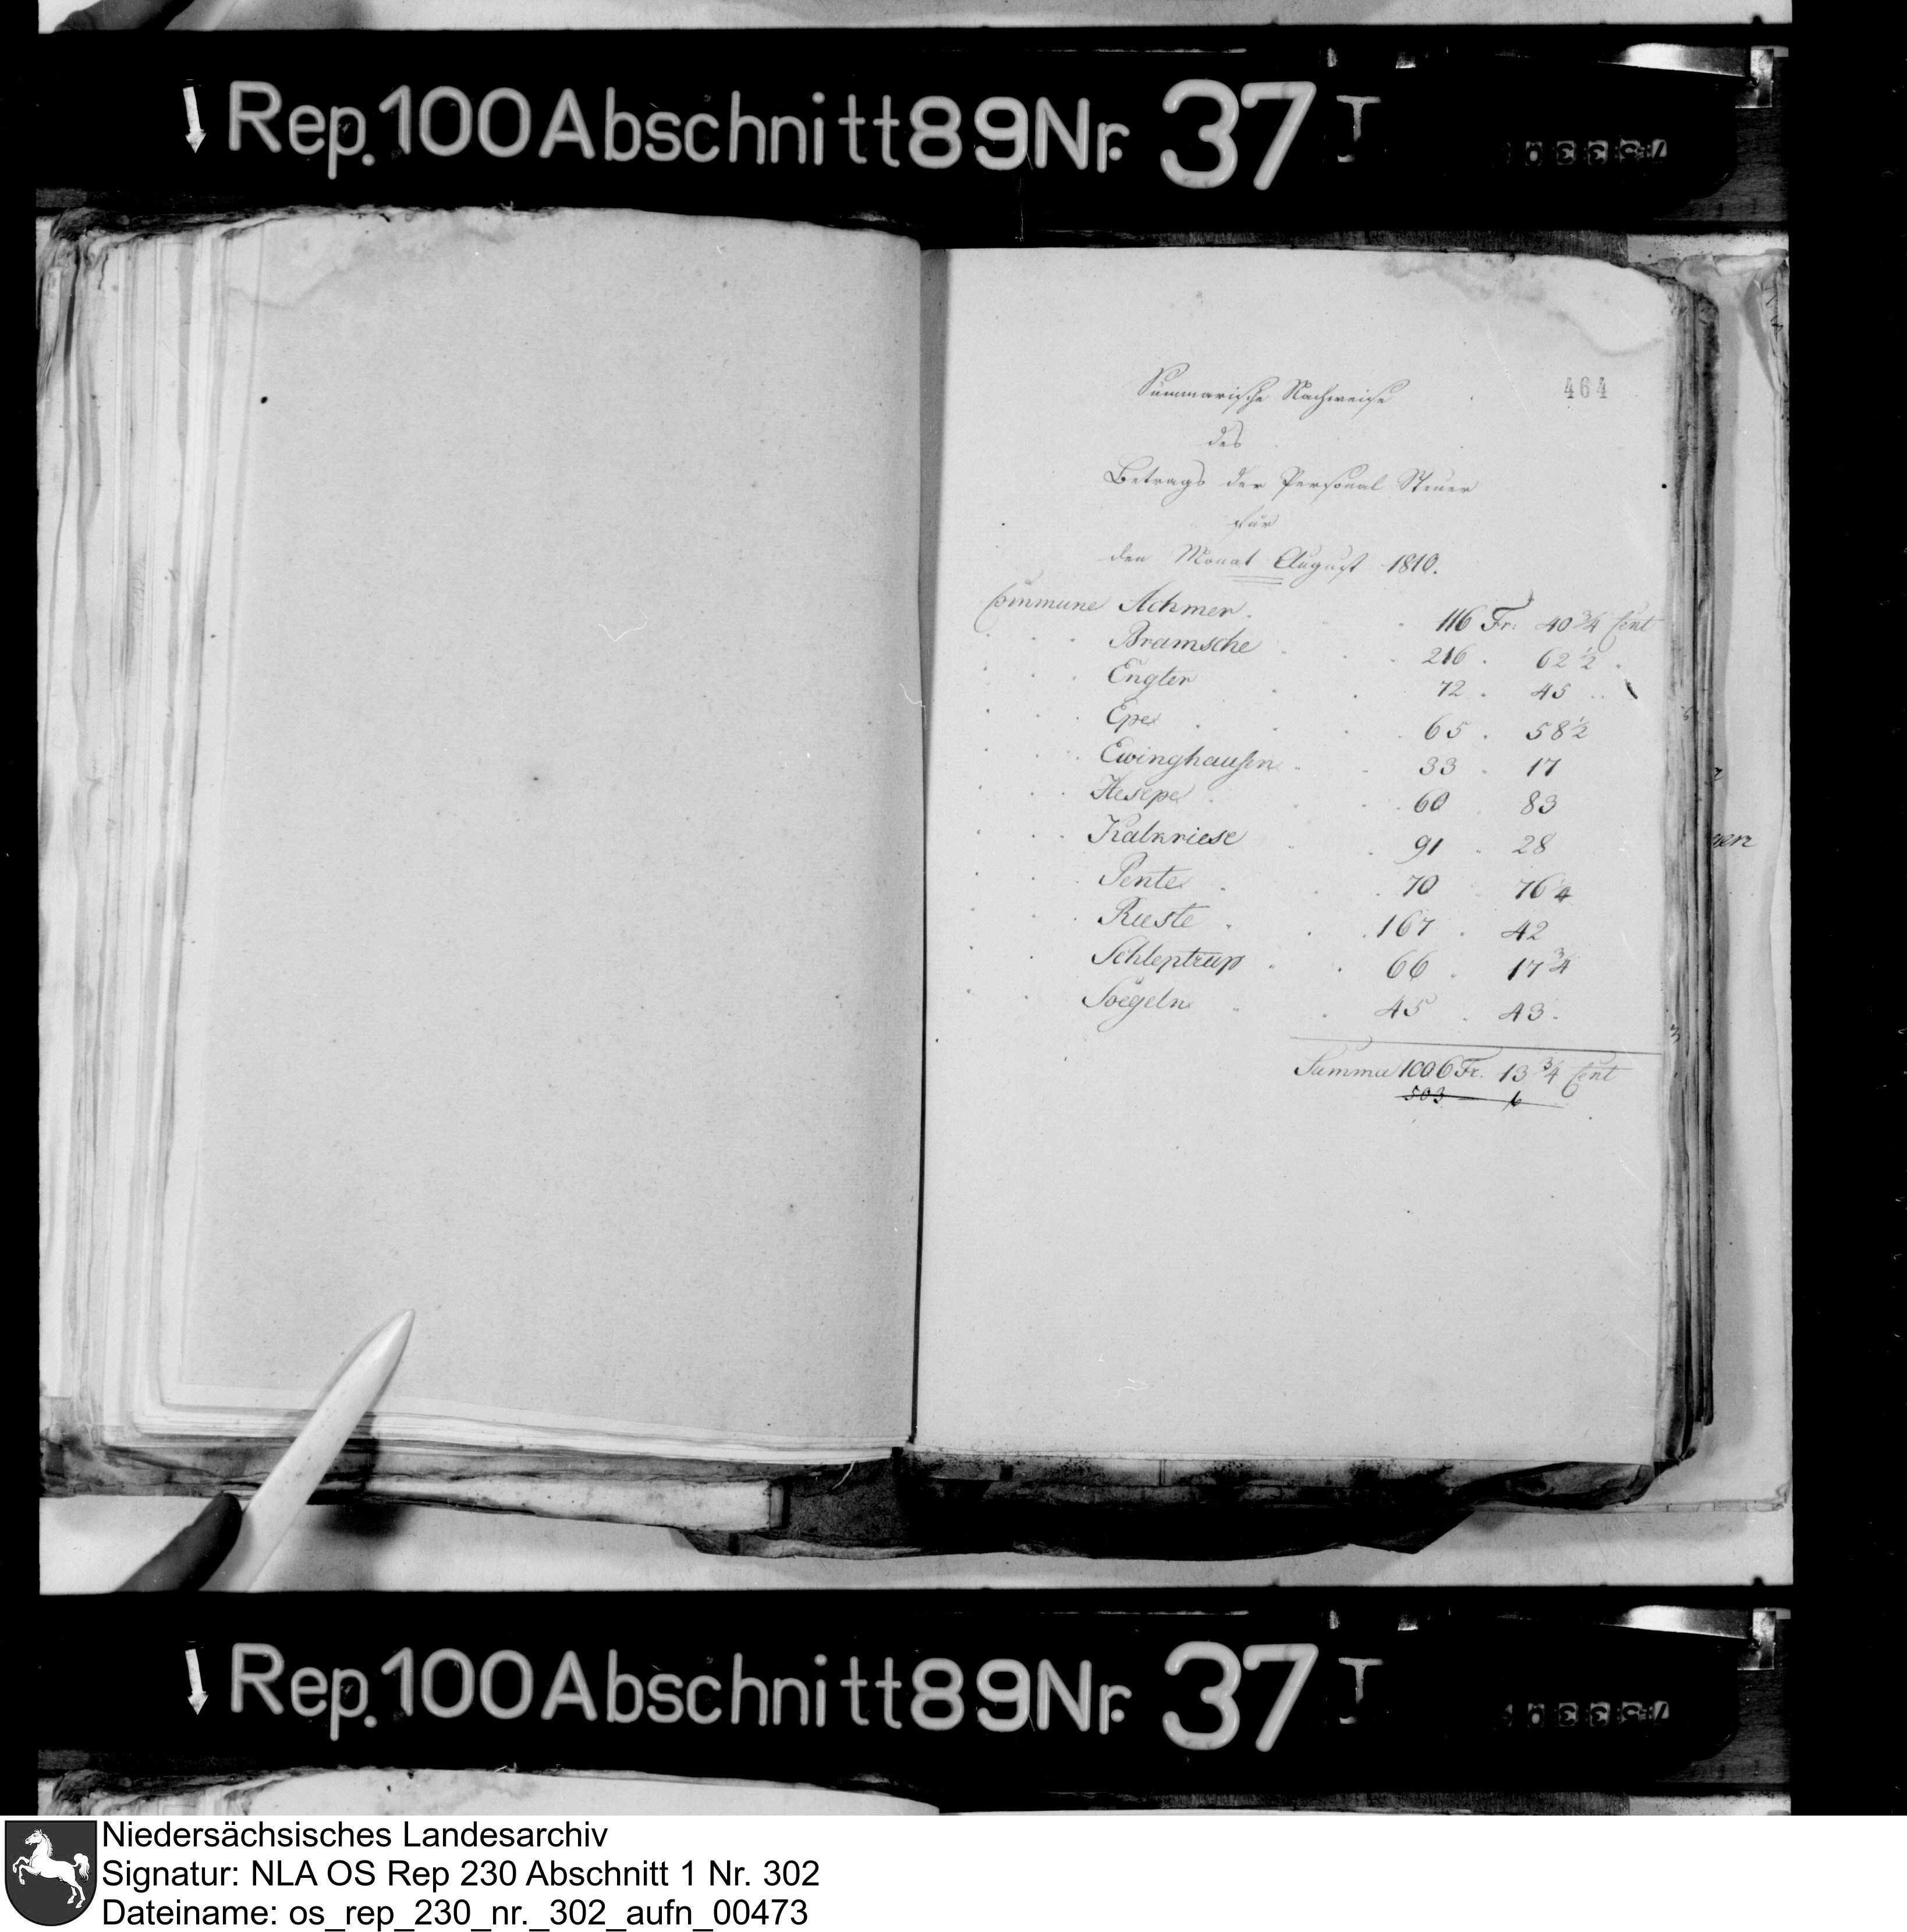 Rep. 100 Abschnitt 89 Nr. 37 I
464
Summarische Nachweise
des
Betrags der Personal Steuer
für
den Monat August 1810.
Commune Achmer. 116 Fr: 40 3/4 Cent
Bramsche 216. 62 1/2
Engter 72. 45
Epe 65. 58 1/2
Ewinghausen 33. 17
Hesepe 60. 83
Kalkriese 91. 28
Pente 70. 76 1/4
Rieste 167. 42
Schleptrup 66. 17 3/4
Soegeln 45. 43.
Summa 1006 Fr. 13 3/4 Cent
503 — 6
Rep. 100 Abschnitt 89 Nr. 37 I
Niedersächsisches Landesarchiv
Signatur: NLA OS Rep 230 Abschnitt 1 Nr. 302
Dateiname: os_rep_230_nr._302_aufn_00473